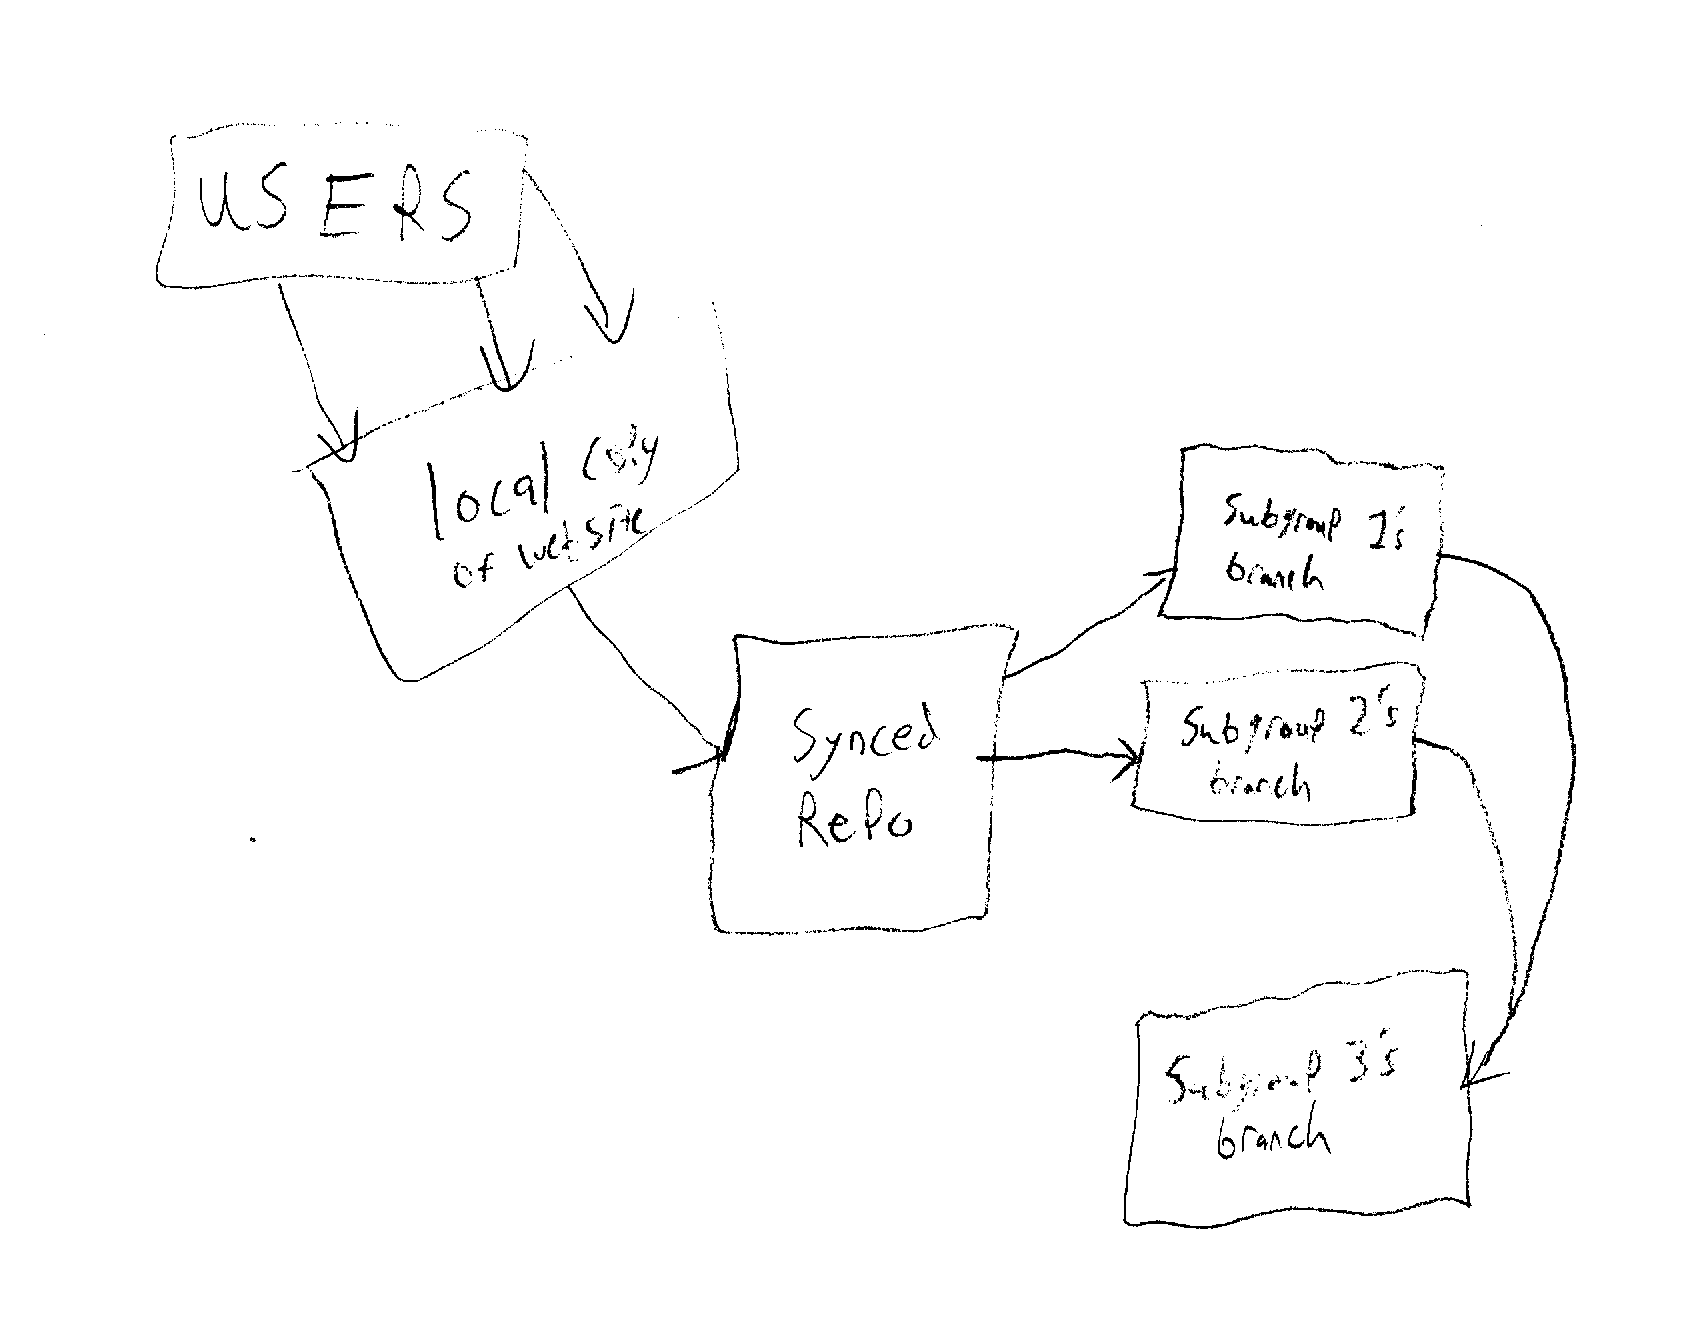 USERS
local copy
of website
Synced
Repo
Subgroup 1's
branch
Subgroup 2's
branch
Subgroup 3's
branch